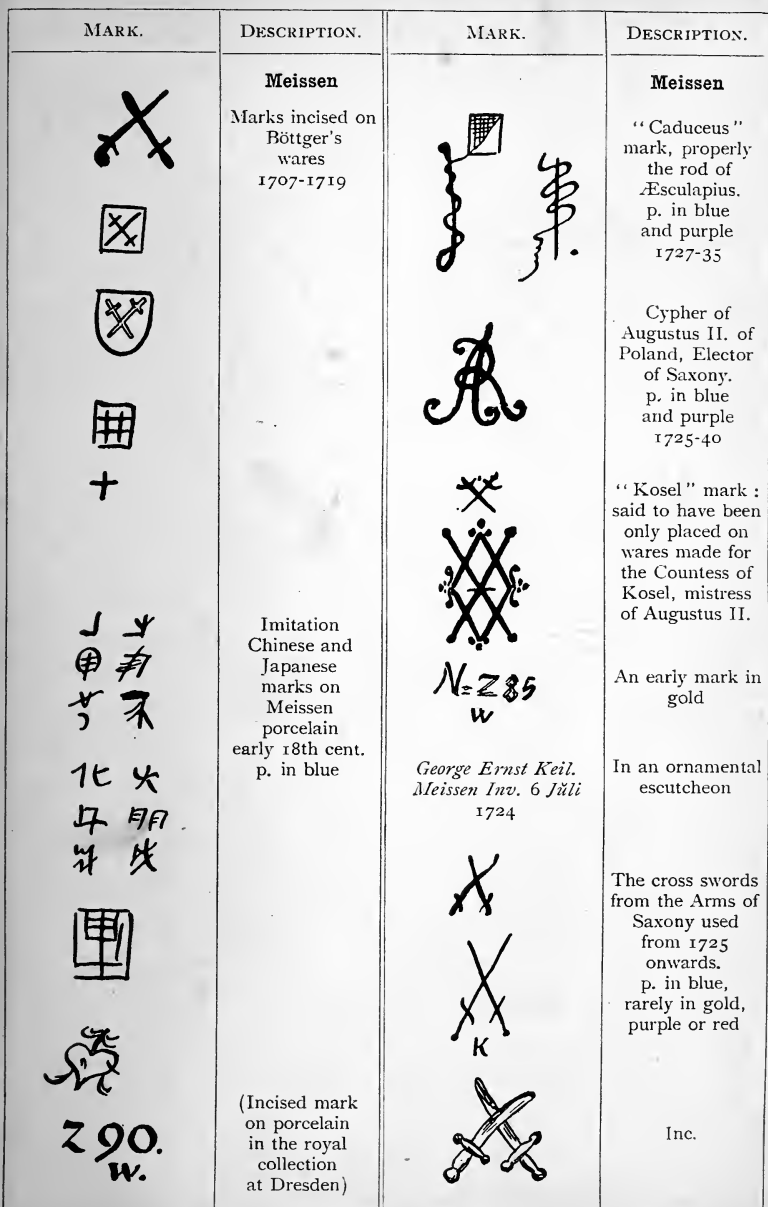 MARK.
DESCRIPTION.
Meissen
Marks incised on
Böttger's
wares
1707-1719
Imitation
Chinese and
Japanese
marks on
Meissen
porcelain
early 18th cent.
p. in blue
Z 90.
W.
(Incised mark
on porcelain
in the royal
collection
at Dresden)
MARK.
DESCRIPTION.
Meissen
"Caduceus"
mark, properly
the rod of
Æsculapius.
p. in blue
and purple
1727-35
AR
Cypher of
Augustus II. of
Poland, Elector
of Saxony.
p. in blue
and purple
1725-40
"Kosel" mark :
said to have been
only placed on
wares made for
the Countess of
Kosel, mistress
of Augustus II.
N=Z85
W
An early mark in
gold
George Ernst Keil.
Meissen Inv. 6 Jŭli
1724
In an ornamental
escutcheon
K
The cross swords
from the Arms of
Saxony used
from 1725
onwards.
p. in blue,
rarely in gold,
purple or red
Inc.